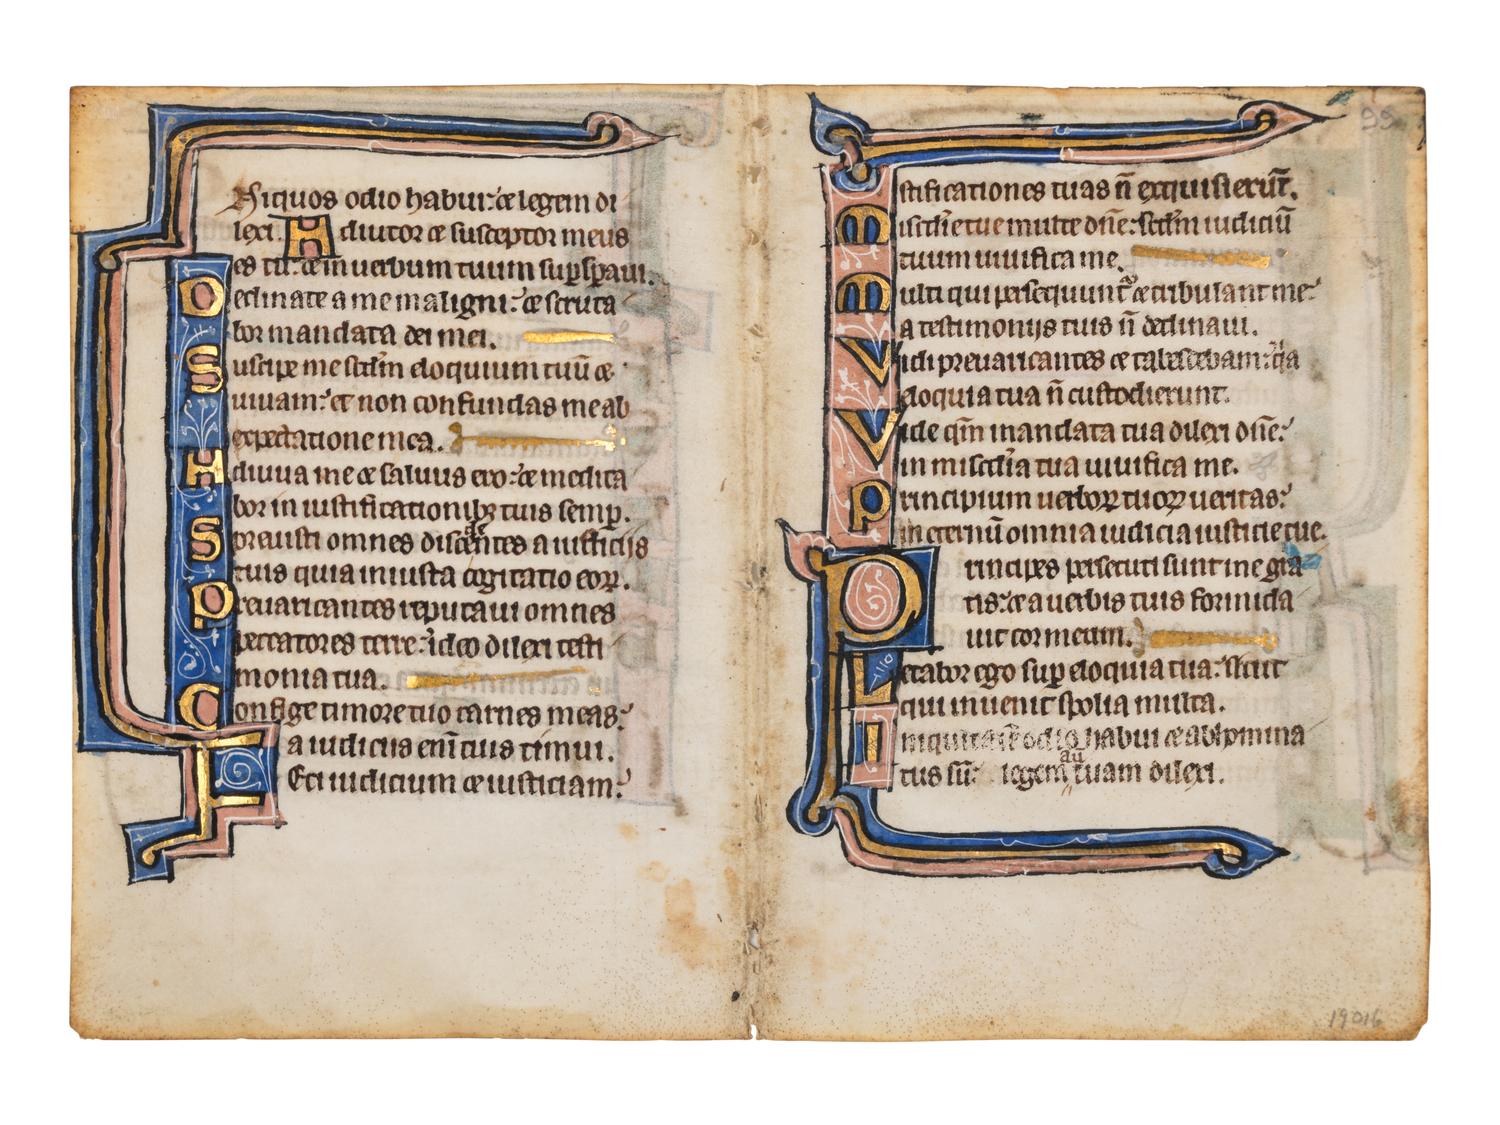 Niquos odio habui: ⁊ legem di
lexi. Adiutor ⁊ susceptor meus
es tu: ⁊ in uerbum tuum sup̱sp̱aui.
Declinate a me maligni: ⁊ scruta
bor mandata dei mei.
Suscipe me scd̄m eloquium tuū ⁊
uiuam: et non confundas me ab
expectatione mea.
Adiuua me ⁊ saluus ero: ⁊ medita
bor in iustificationibꝫ tuis semp̱.
Spreuisti omnes discentes a iusticiis
tuis quia iniusta cogitatio eoꝝ.
Preuaricantes reputaui omnes
peccatores terre: ideo dilexi testi
monia tua.
Confige timore tuo carnes meas:
a iudiciis eni̅ tuis timui.
Feci iudicium ⁊ iusticiam:
99
stificationes tuas n̄ exquisierūt.
Miscd̄ie tue multe dn̄e: scd̄m iudiciū
tuum uiuifica me.
Multi qui persequunt᷑ ⁊ tribulant me:
a testimoniis tuis n̄ declinaui.
Vidi preuaricantes ⁊ tabescebam: q̄a
eloquia tua n̄ custodierunt.
Vide qm̄ mandata tua dilexi dn̄e:
in miscd̄ia tua uiuifica me.
Principium uerboꝝ tuoꝝ ueritas:
in eternū omnia iudicia iusticie tue.
Principes persecuti sunt me gra
tis: ⁊ a uerbis tuis formida
uit cor meum.
Letabor ego sup̱ eloquia tua: sicut
qui inuenit spolia multa.
Iniquitatē odio habui ⁊ abhomina
tus sū: legem au̅ tuam dilexi.
19016